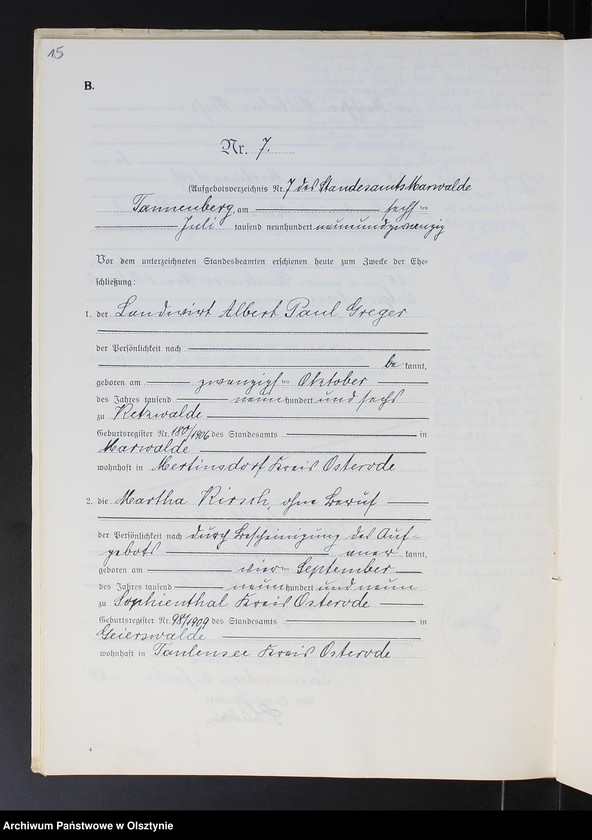 15
B.
Nr. 7.
(Aufgebotsverzeichnis Nr. 7 des Standesamts Marwalde
Tannenberg, am sechsten
Juli tausend neunhundert neunundzwanzig
Vor dem unterzeichneten Standesbeamten erschienen heute zum Zwecke der Ehe-
schließung:
1. der Landwirt Albert Paul Greger
der Persönlichkeit nach
be kannt,
geboren am zwanzigsten Oktober
des Jahres tausend neunhundert und sechs
zu Ketzwalde
Geburtsregister Nr. 180/1906 des Standesamts in
Marwalde
wohnhaft in Mertinsdorf Kreis Osterode
2. die Martha Kirsch, ohne Beruf
der Persönlichkeit nach durch Bescheinigung des Auf-
gebots aner kannt,
geboren am vierten September
des Jahres tausend neunhundert und neun
zu Sophienthal Kreis Osterode
Geburtsregister Nr. 98/1909 des Standesamts in
Geierswalde
wohnhaft in Taulensee Kreis Osterode
4
Archiwum Państwowe w Olsztynie